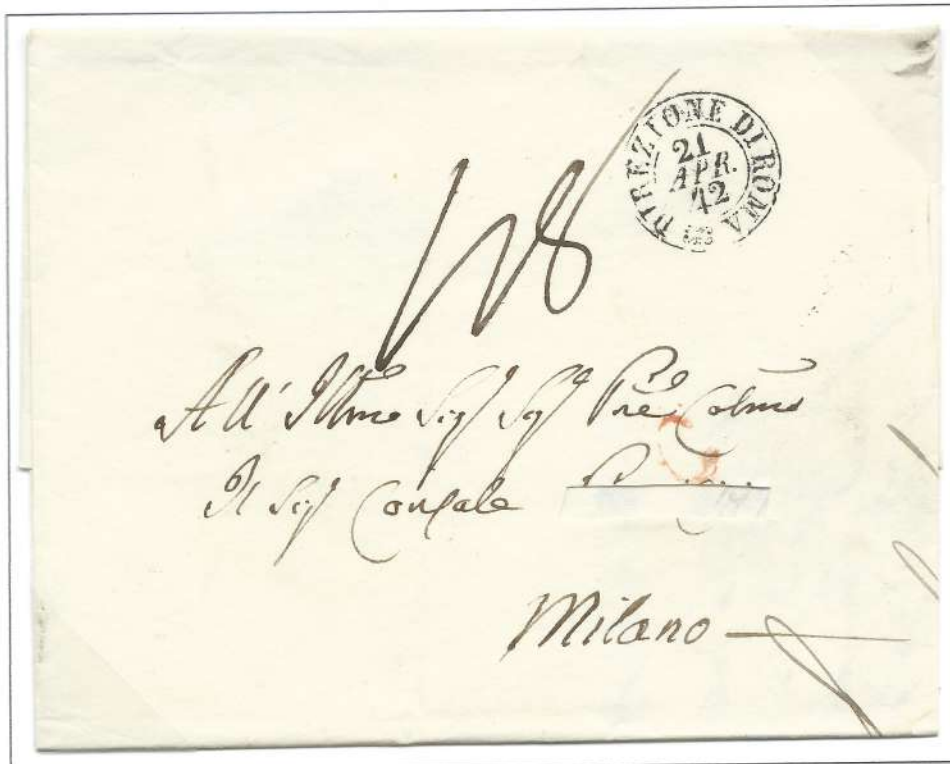 DIREZIONE DI ROMA
21
APR.
42
All' Illmo Sigr Sigr Prē Colmo
Il Sigr Consale
Milano